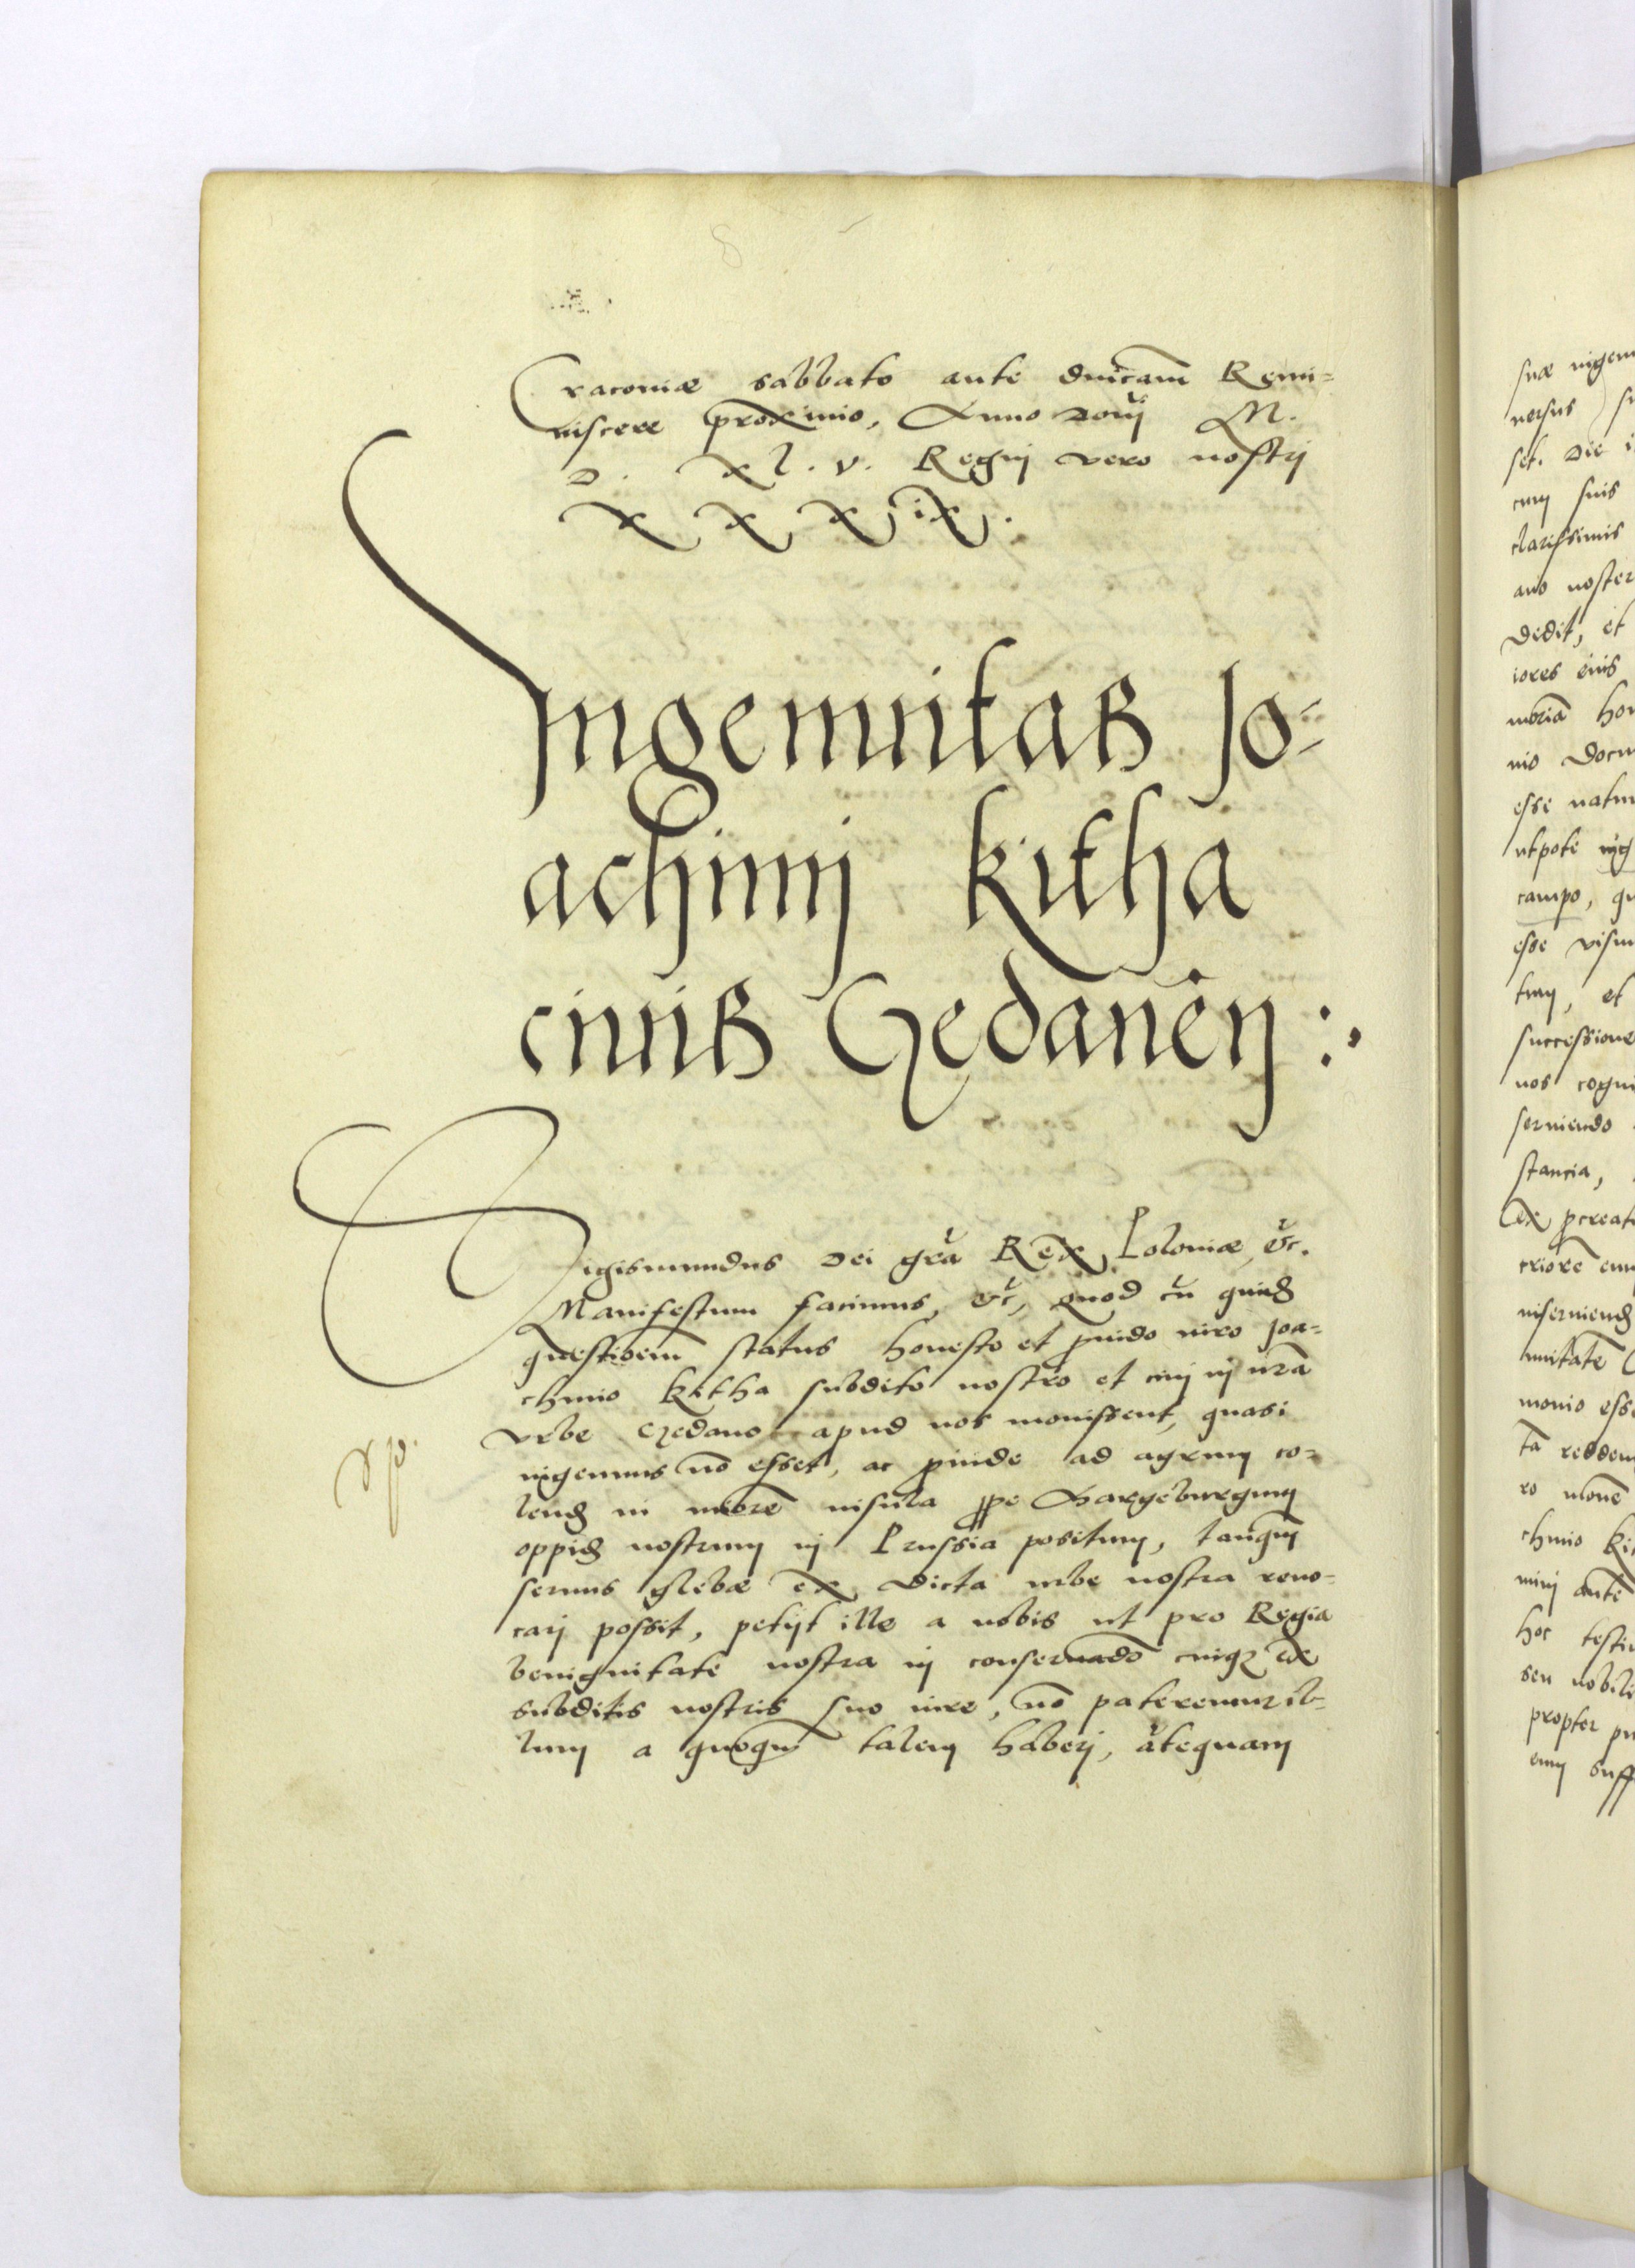 Cracouiæ sabbato ante dnicam Remi=
niscere proximo, Anno Domi M.
D. xl.v. Regni vero nostrj
XXXIX.
Ingenuitas Jo=
achimj Kitha
ciuis Gedaneñ:
Sigismundus Dei gra Rex Poloniæ, &c.
Manifestum facimus, &c, Quod cu quidã
quæstionem status honesto et prouido viro Joa=
chimo Kitha subdito nostro et ciuj in nrã
vrbe Gedano apud nos mouissent, quasi
ingenuus nõ esset, ac proinde ad agrum co=
lend in minore insula prope Margeburgum
oppid nostrum in Prussia positum, tanquã
seruus glebæ ex dicta urbe nostra reuo=
carj possit, petijt ille a nobis ut pro Regia
benignitate nostra in conseruãdo cuiq; ex
subditis nostris suo iure, nõ pateremur il=
lum a quoquã talem haberj, ãtequam
suæ ingen
uersus su
set. Die i
cum suis
clarissimis
auo noster
dedit, et
iores eius
moriã hon
nio docu
esse natu
utpote ing
campo, qu
esse visu
tum, et
successione
nos cogni
seruiendo
stantia,
ex procreat
criorẽ eum
inseruiend
nuitatẽ
monio esse
tã redden
ro mone
chimo Ki
minj antẽ
hoc testi
seu nobili
propter pu
eum suff